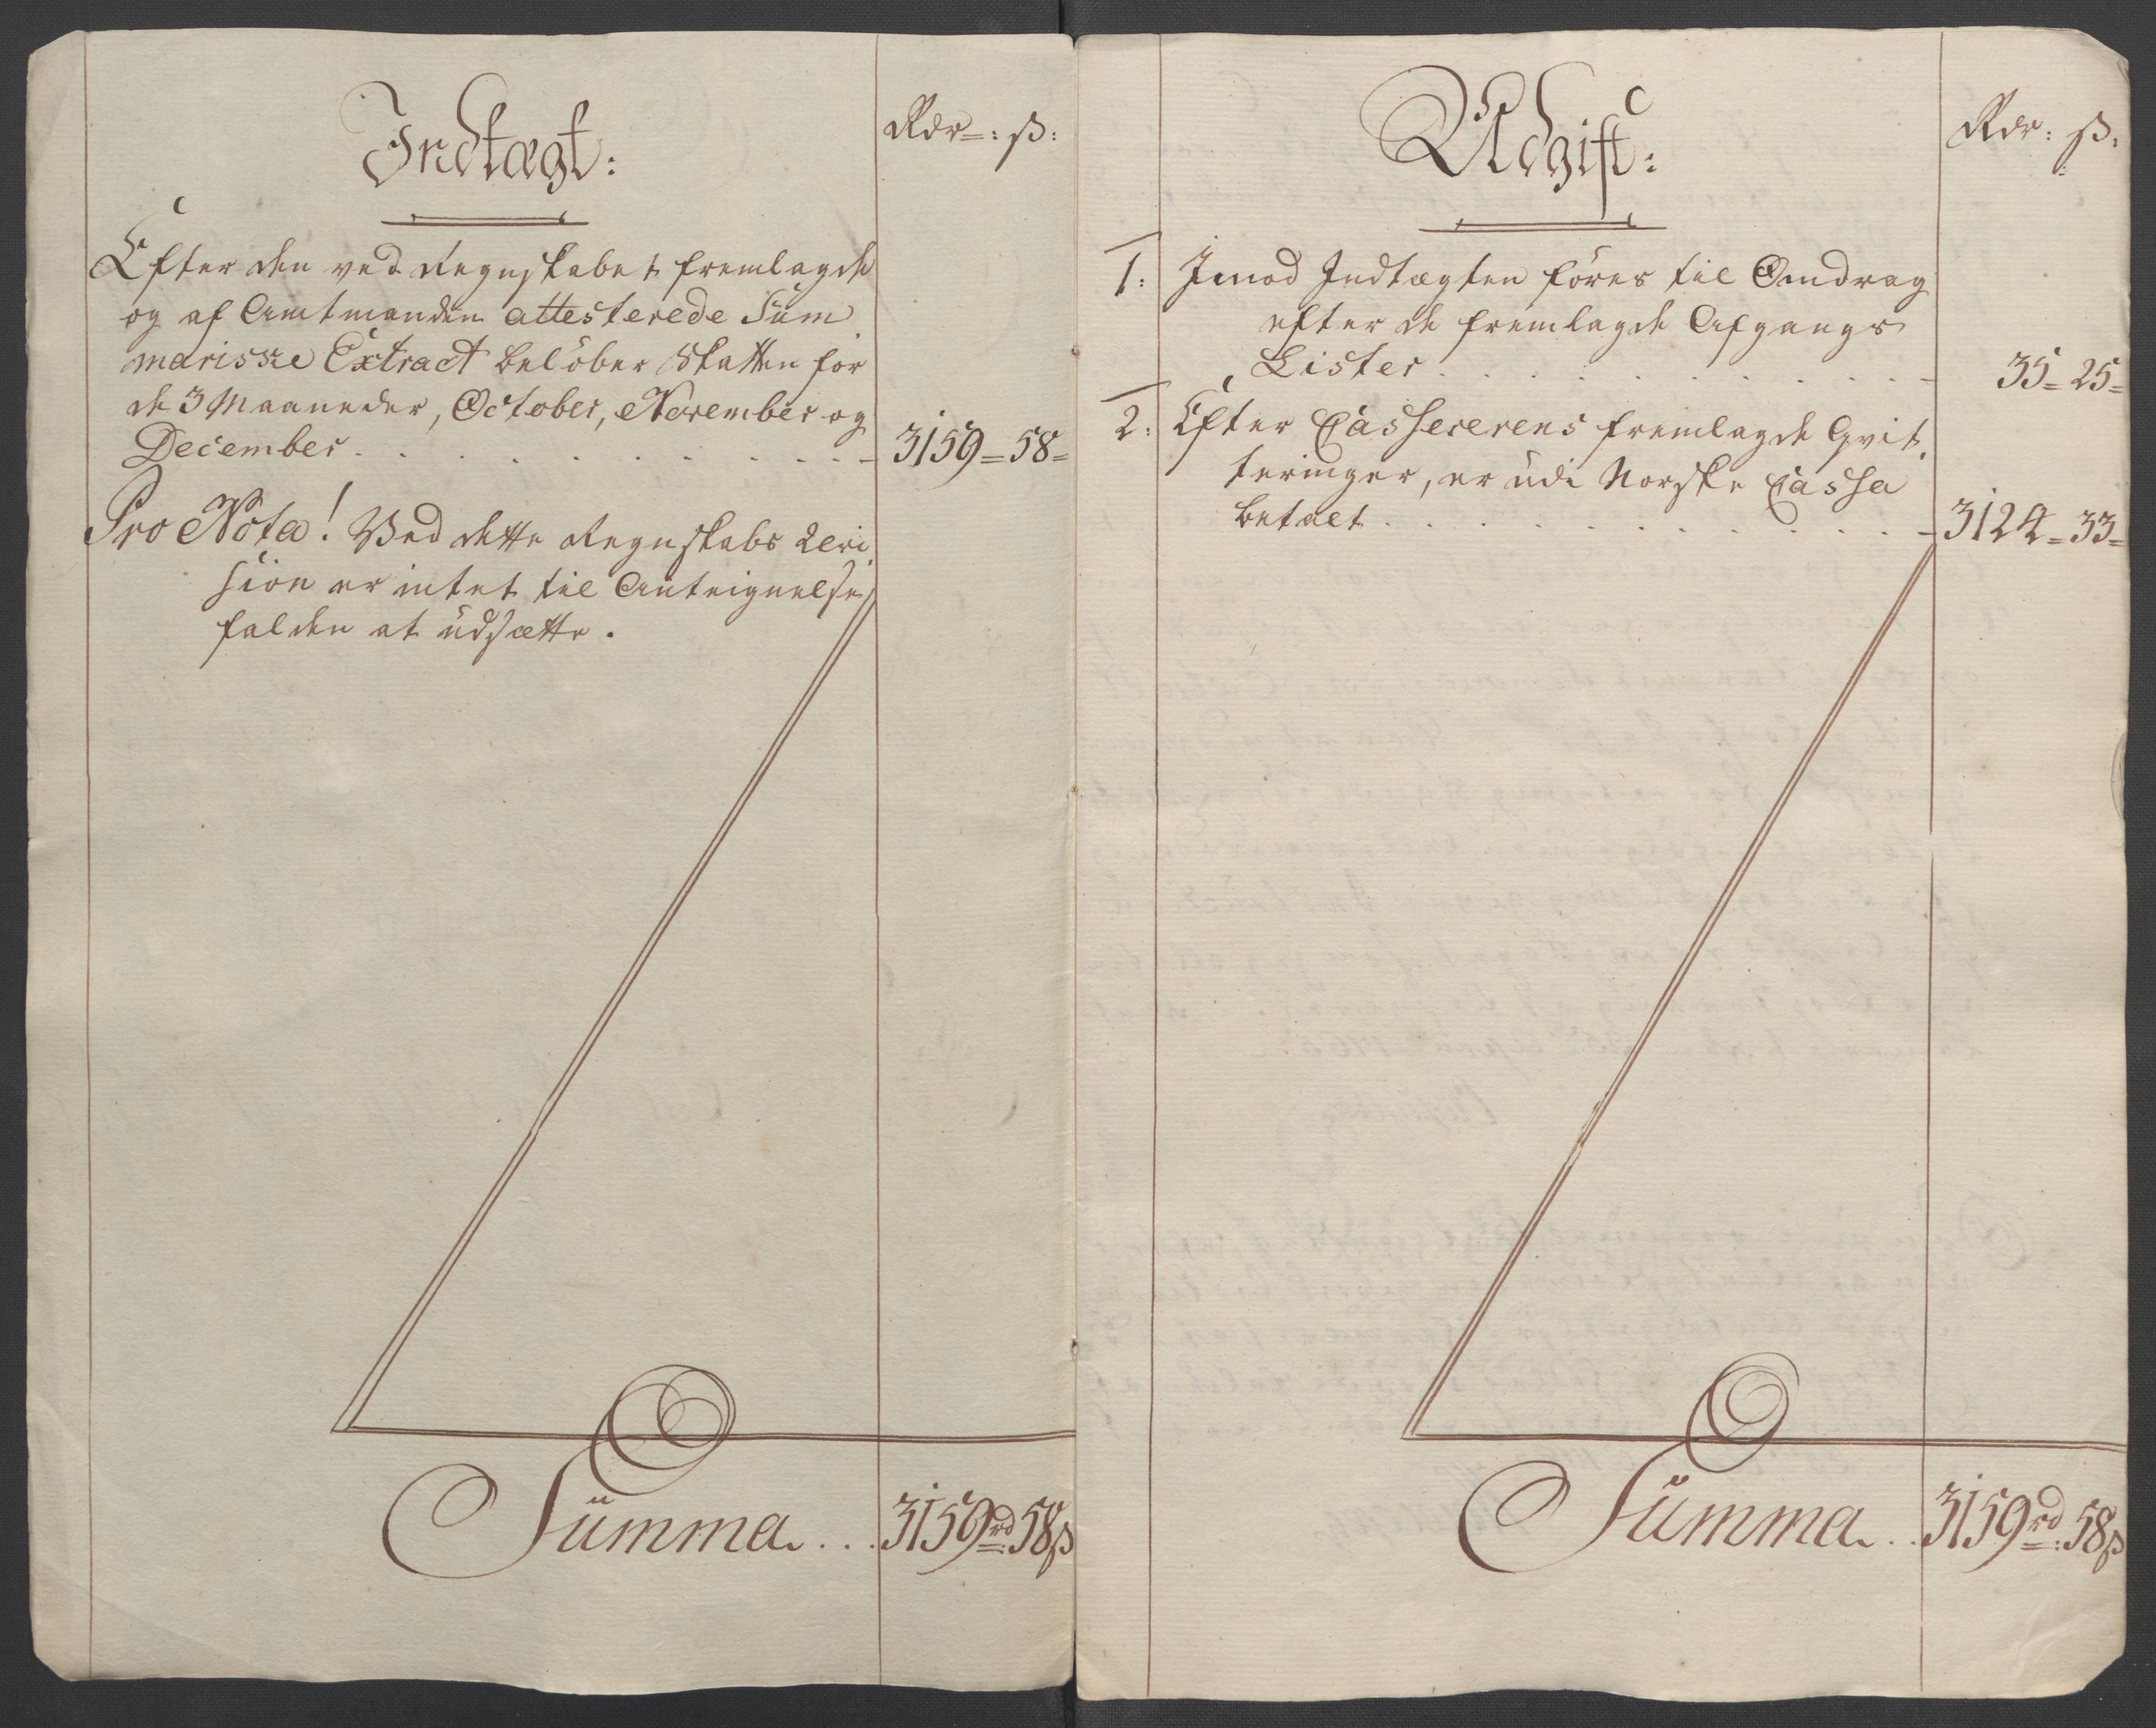 Indtægt:
Rdr: ß:
Efter den ved Regnskabet fremlagde
og af Amtmanden attesterede Sum
mariske Extract beløber Skatten for
de 3 Maaneder, October, November og
December . . . . . . . . . . 3159 = 58 =
Pro Nota! Ved dette Regnskabs Revi
sion er intet til Anteignelse
falden at udsætte.
Summa . . . 3159 rd: 58 ß
Udgift:
Rdr: ß:
1: Imod Indtægten føres til Omdrag
efter de fremlagde Afgangs
Lister . . . . . . . . . . 35 = 25 =
2: Efter Cassererens fremlagde Qvit
teringer, er udi Norske Cassa
betalt . . . . . . . . . . 3124 = 33 =
Summa . . 3159 rd: 58 ß